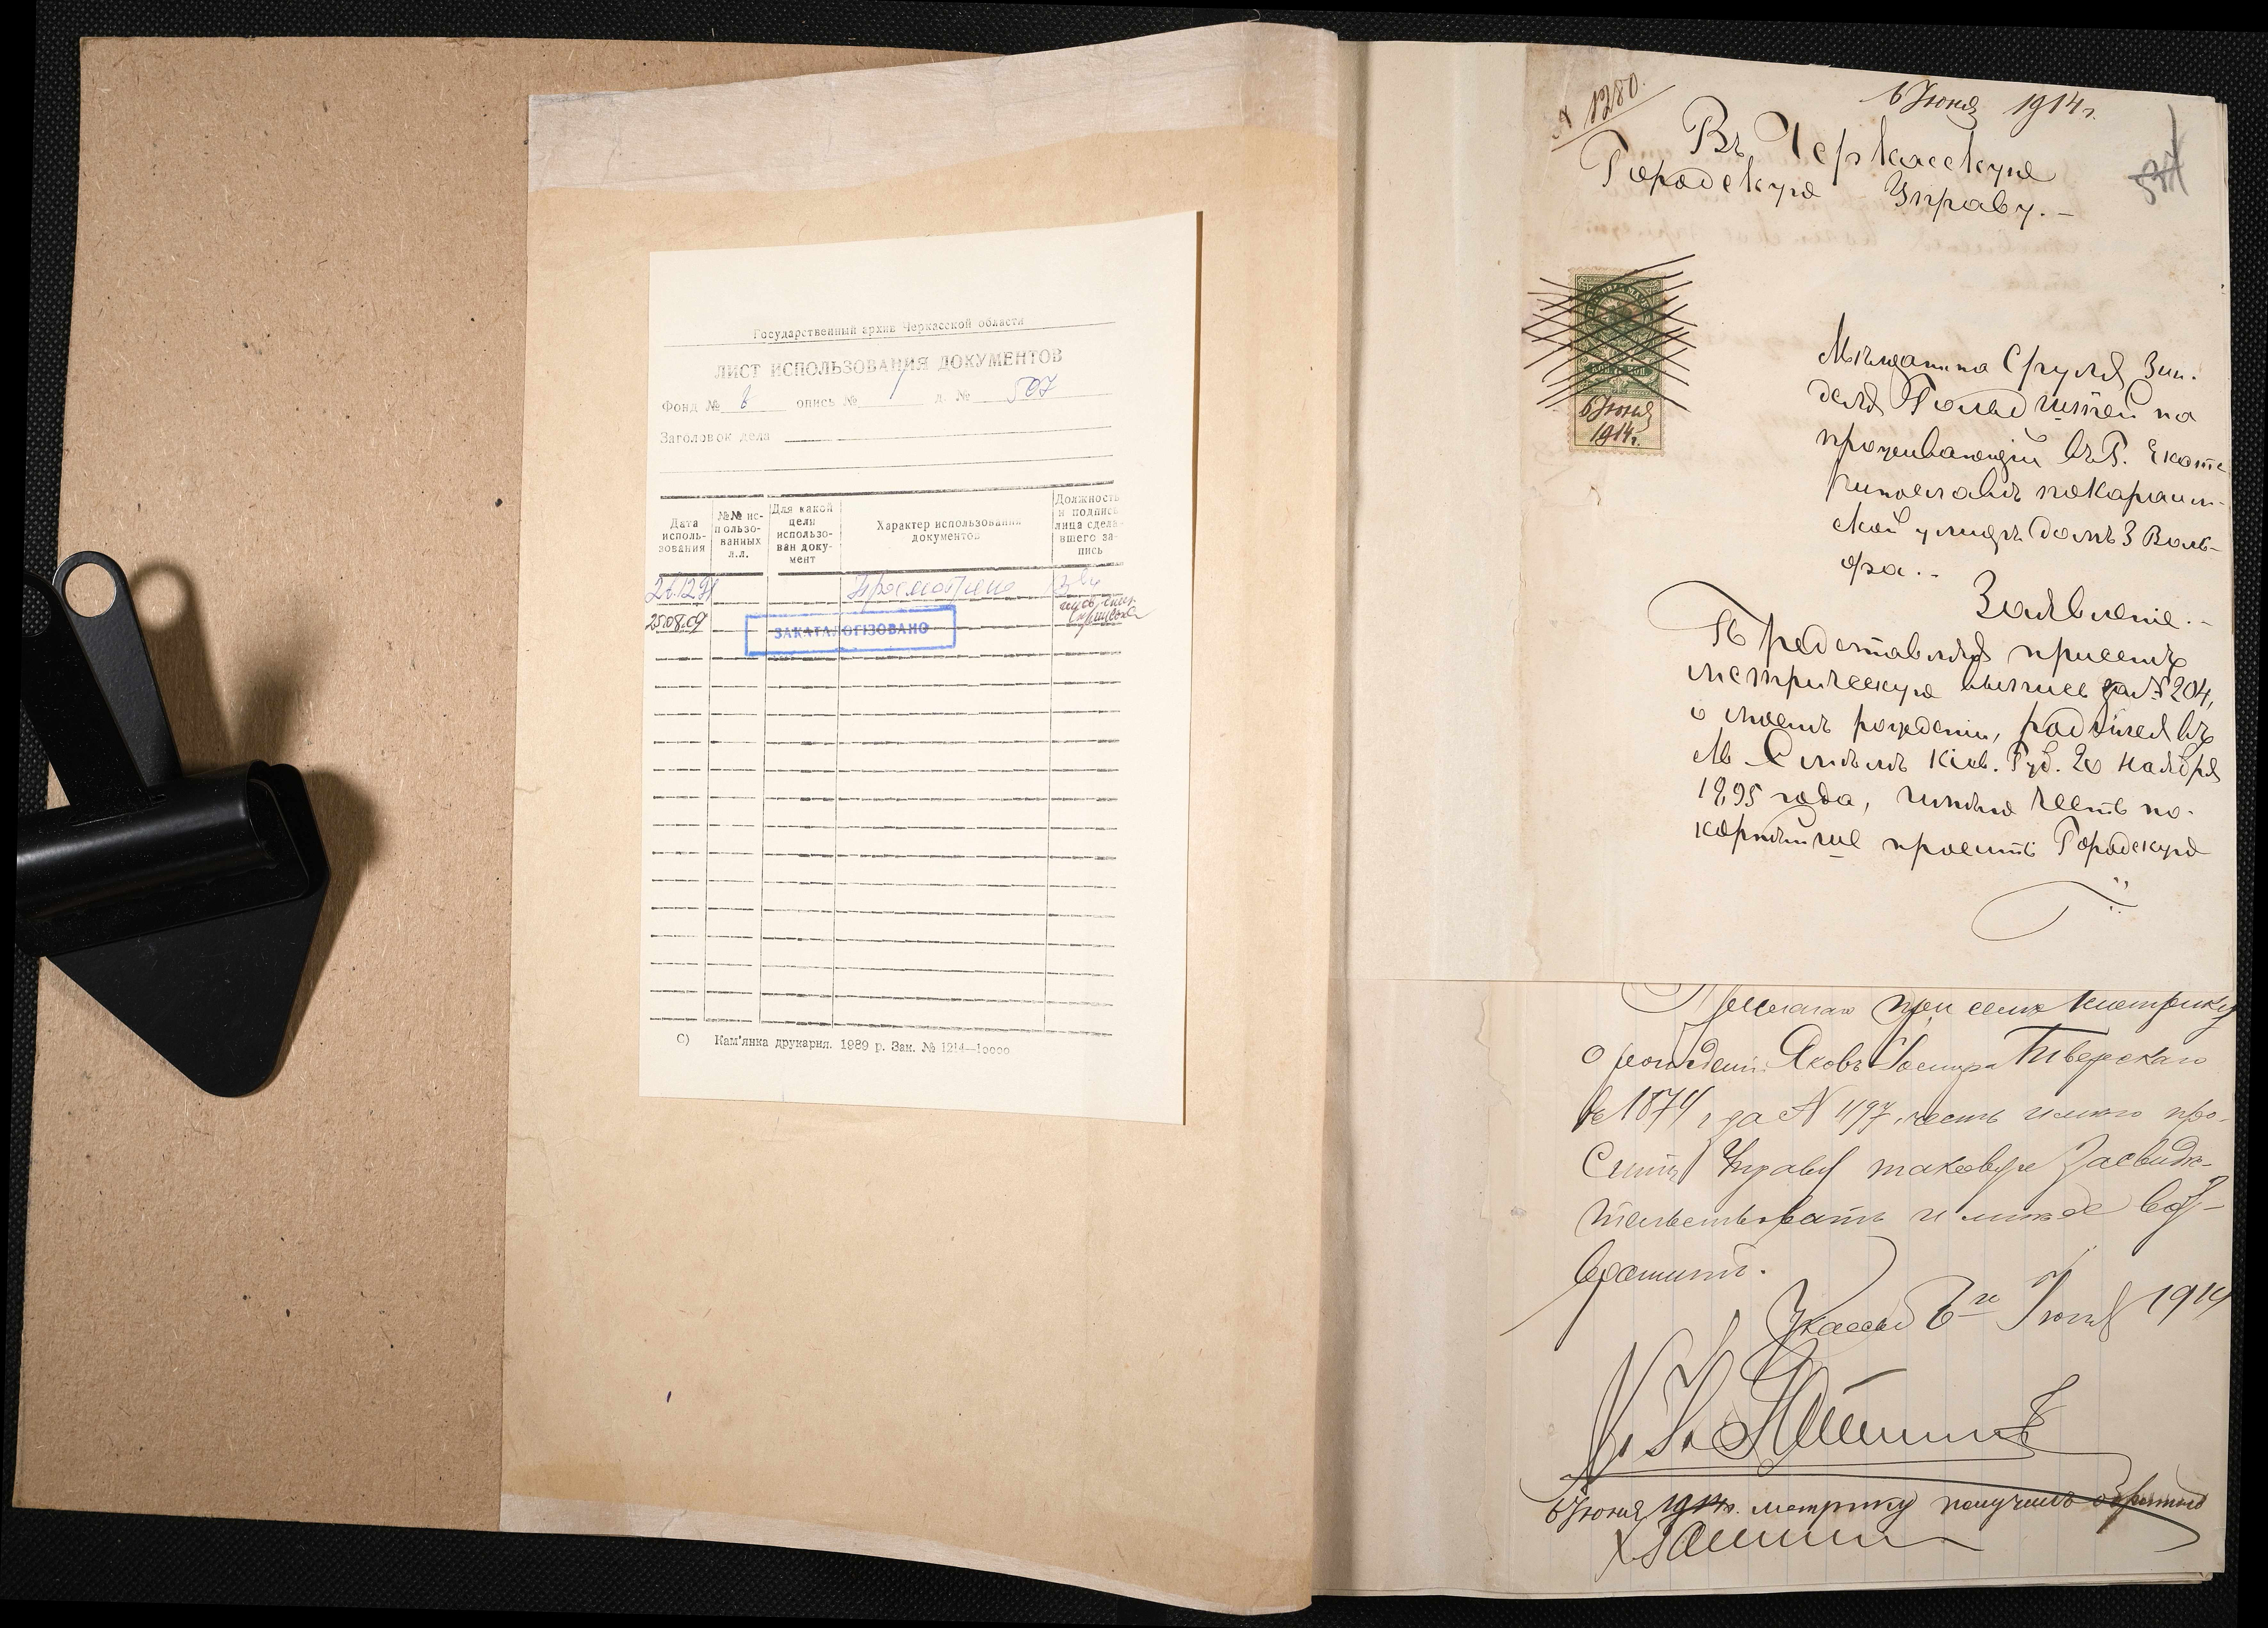 Государственный архив Черкасской области
ЛИСТ ИСПОЛЬЗОВАНИЯ ДОКУМЕНТОВ
Фонд № 6 опись № 1 д. № 507
Заголовок дела
Дата исполь-зования
№№ ис-пользо-ванных л.л.
Для какой цели использо-ван доку-мент
Характер использования документов
Должность и подпись лица сдела-вшего за-пись
26.12.91 Просмотрено
25.08.09
ЗАКАТАЛОГІЗОВАНО
С) Кам'янка друкарня. 1989 р. Зак. № 1214—10000
№ 1280.
6 Июня 1914 г.
Въ Черкасскую
Городскую Управу. —
6 Июня
1914 г.
Мѣщанина Сруля Зин-
деля Гольдштейна
проживающій въ Г. Екате
ринославѣ по
ской улицѣ домъ 3 Воль-
фа. -
Заявленіе. -
Представляя присемъ
метрическую выпись за № 204,
о моемъ рожденіи, родился въ
М. Смѣлѣ Кіев. Губ. 20 Ноября
1895 года, имѣю честь по-
корнѣйше просить Городскую
Прилагаю при семъ метрику
о рожденіи Якова Тверскаго
въ 1874 г за № 1197, честь имѣю про-
сить Управу таковую засвидѣ-
тельствовать и мнѣ ее воз-
вратить.
Черкассы 6го Іюня 1914
6 Июня 1914 г. метрику получилъ обратно